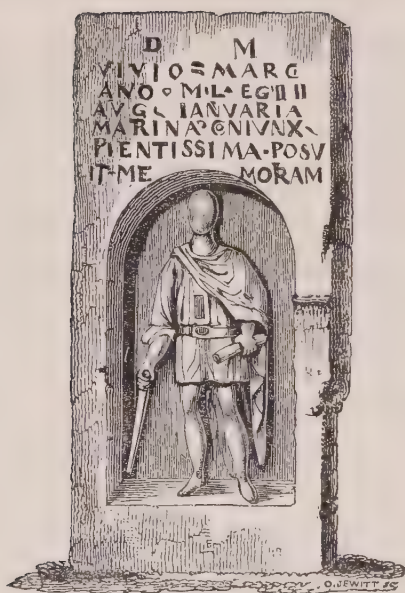 D M
VIVIO MARC
ANO M·L·EG II II
AVG IANVARIA
MARINA CONIVNX
PIENTISSIMA·POSV
IT·ME MORAM
O. JEWITT SC